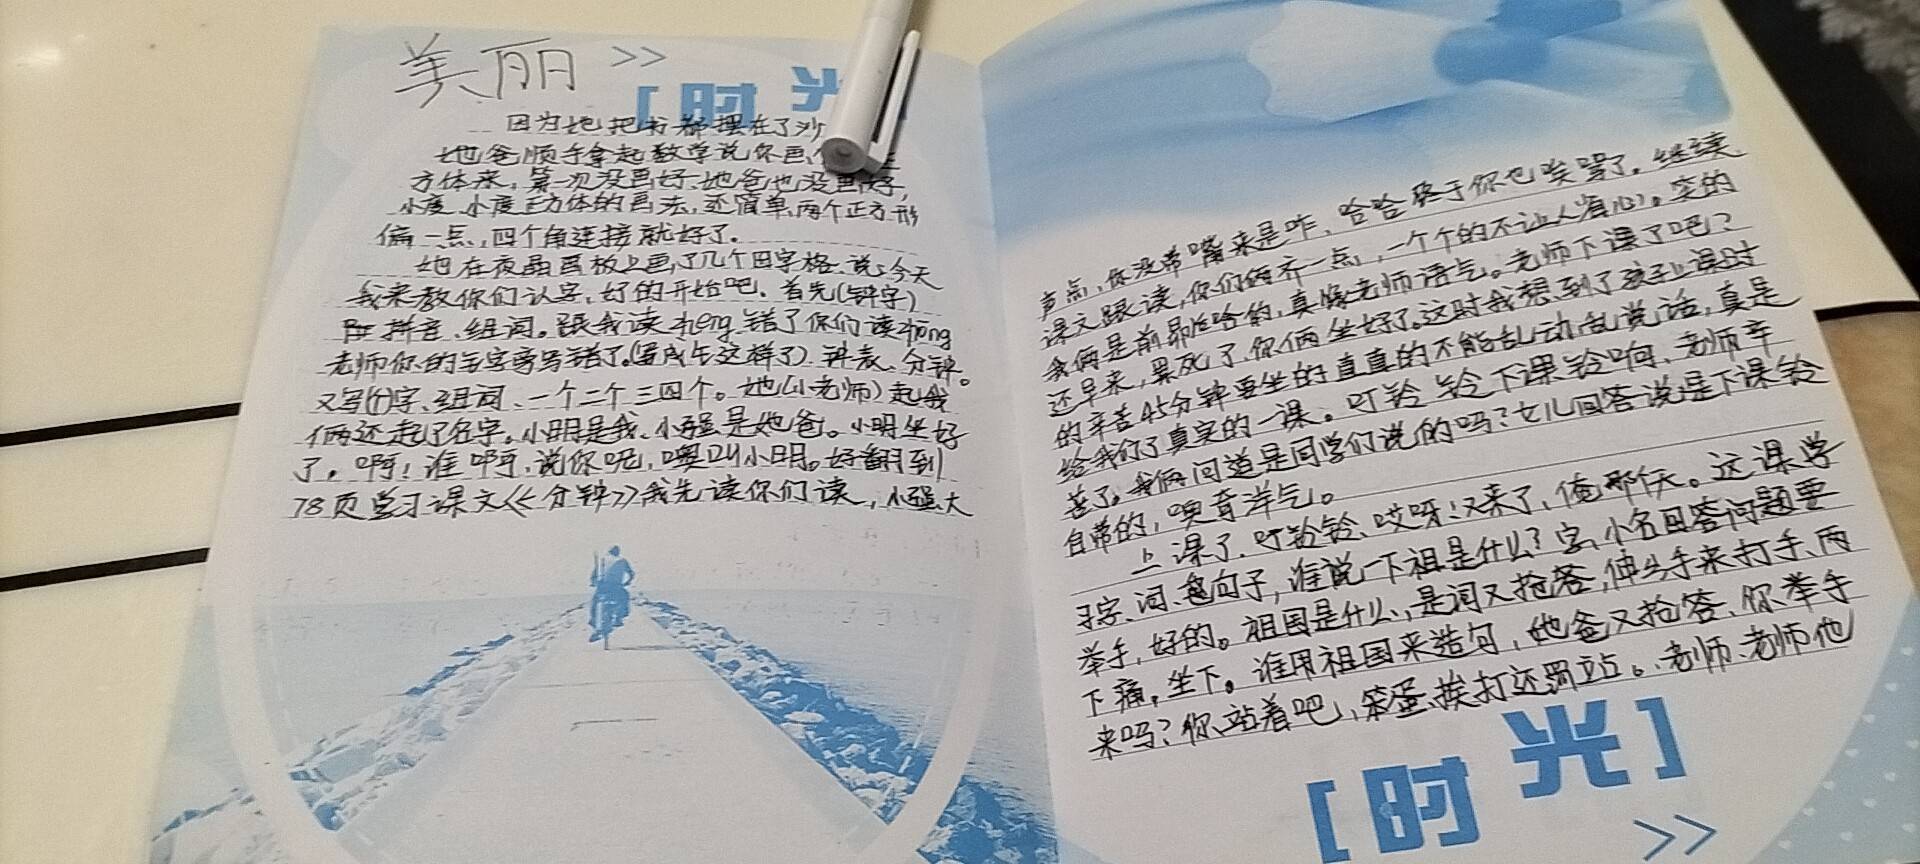 美丽 >>
[时光
因为她把书都摆在了沙
她爸顺手拿起数学说你画
方体来，第一次没画好、她爸也没画好，
小度、小度正方体的画法，还简单，两个正方形
偏一点，四个角连接就好了。
她在液晶画板上画了几个田字格、说：今天
我来教你们认字，好的开始吧。首先(钟字)
拼音、组词。跟我读zheng错了你们读zhong
老师你的字旁写错了。(写成车这样了)、钟表、分钟。
又写(个)字、组词、一个二个三四个。她(小老师)起我
俩还起了名字。小明是我、小强是她爸。小明坐好
了。啊！谁啊，说你呢，噢叫小明。好翻到
78页学习课文《一分钟》我先读你们读，小强大
声点，你没带嘴来是咋、哈哈终于你也挨骂了。继续
课文跟读，你们俩齐一点，一个个的不让人省心。突的
我俩是前哈的，真像老师语气。老师下课了吧？
还早来，累死了、你俩坐好了。这时我想到了孩子上课时
的辛苦45分钟要坐的直直的不能乱动乱说话，真是
给我们了真实的一课。叮铃铃下课铃响、老师辛
苦了。我俩问道是同学们说的吗？女儿回答说是下课铃
自带的，噢育洋气。
上课了、叮铃铃、哎呀！又来了，俺那任天。这课学
习字、词、句子，谁说一下祖是什么？字、小名回答问题要
举手，好的。祖国是什么，是词又抢答，伸头手来打手、两
下痛。坐下。谁用祖国来造句，她爸又抢答、你举手
来吗？你站着吧，笨蛋、挨打还罚站。老师、老师他
[时光]
>>